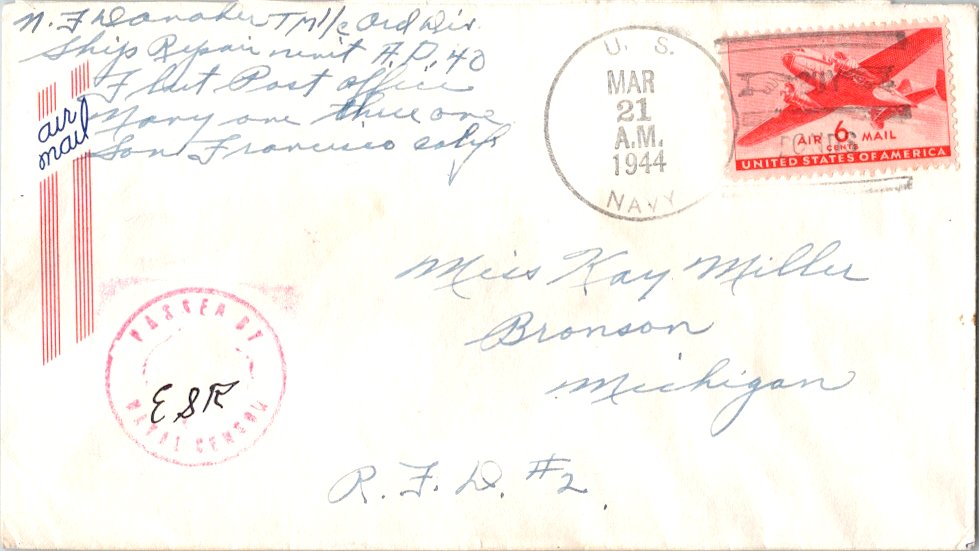 N. F. Danaher TM1/c Ord Div.
Ship Repair unit A.D. 40
Fleet Post office
Navy one three one
San Francisco Calif
air
mail
U. S.
MAR
21
A.M.
1944
NAVY
AIR 6 MAIL
CENTS
UNITED STATES OF AMERICA
Miss Kay Miller
Bronson
Michigan
R. F. D. #2
PASSED BY
ESR
NAVAL CENSOR